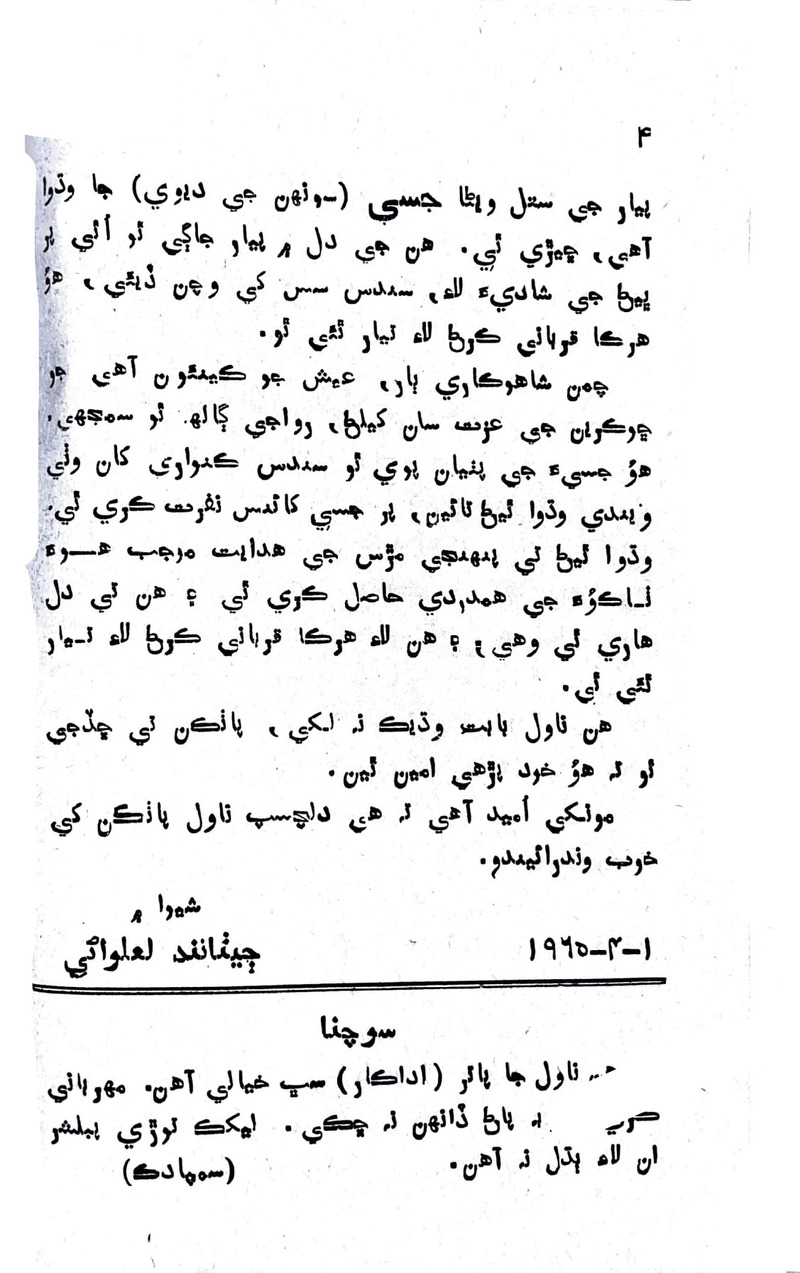 ۴
پيار جي ستل ويڻا جسي (سونهن جي ديوي) جا وڌوا
آهي، ڇيڙي ٿي. هن جي دل ۾ پيار جاڳي ٿو اُٿي پر
ڀيڻ جي شاديءَ لاءِ، سندس سس کي وچن ڏيئي، هوُ
هرڪا قرباني ڪرڻ لاءِ تيار ٿئي ٿو.
چمن شاهوڪاري ٻار، عيش جو ڪينئون آهي جو
ڇوڪرين جي عزت سان کيلڻ، رواجي ڳالهہ ٿو سمجهي.
هوُ جسيءَ جي پٺيان پوي ٿو سندس ڪنواري کان وٺي
ويندي وڌوا ٿيڻ تائين، پر جسي کائنس نفرت ڪري ٿي.
وڌوا ٿيڻ تي پنهنجي مڙس جي هدايت موجب هــوءَ
ٺـاڪُرَ جي همدردي حاصل ڪري ٿي ۽ هن تي دل
هاري ٿي وهي، ۽ هن لاءِ هرڪا قرباني ڪرڻ لاءِ تـيار
ٿئي ٿي.
هن ناول بابت وڌيڪ نہ لکي، پاٺڪن تي ڇڏجي
ٿو تہ هوُ خود پڙهي امين ٿين.
مونکي اُميد آهي تہ هي دلچسپ ناول پاٺڪن کي
خوب وندرائيندو.
شيوا ۾
۱-۴-۱۹٦۵ جيٺانند لعلواڻي
سوچنا
ناول جا پاتر (اداڪار) سڀ خيالي آهن. مهرباني
ڪري پاڻ ڏانهن نہ ڇڪي. ليکڪ توڙي پبلشر
ان لاءِ ٻڌل نہ آهن. (سمپادڪ)